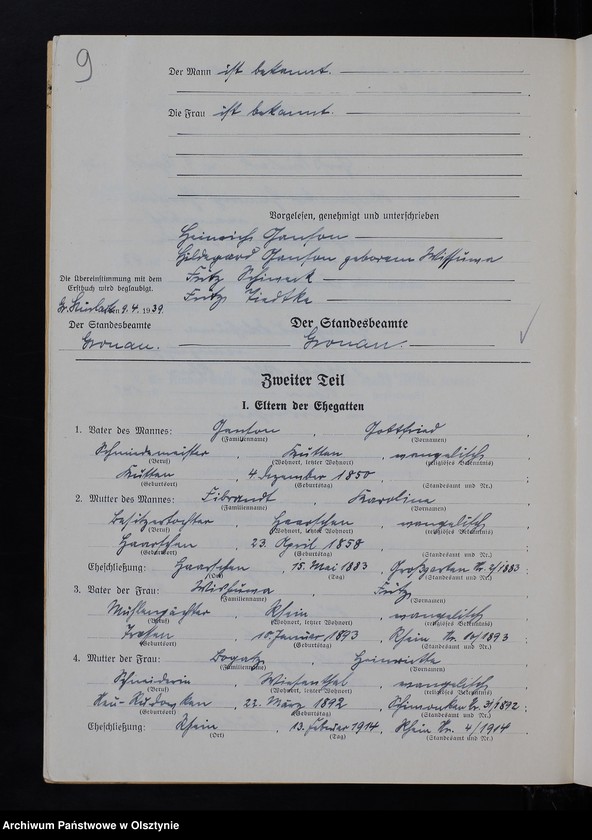 9
Der Mann ist bekannt.
Die Frau ist bekannt.
Vorgelesen, genehmigt und unterschrieben
Heinrich Janson
Hildegard Janson geborene Wissuwa
Fritz
Fritz
Die Übereinstimmung mit dem
Erstbuch wird beglaubigt.
Gr. den 9.4. 1939
Der Standesbeamte
Gronau.
Der Standesbeamte
Gronau.
Zweiter Teil
I. Eltern der Ehegatten
1. Vater des Mannes: Janson, Gottfried,
(Familienname) (Vornamen)
Schmiedemeister, Kutten, evangelisch,
(Beruf) (Wohnort, letzter Wohnort) (religiöses Bekenntnis)
Kutten, 4. Dezember 1850,
(Geburtsort) (Geburtstag) (Standesamt und Nr.)
2. Mutter des Mannes: Fibrandt, Karoline,
(Familienname) (Vornamen)
Besitzertochter, Haarschen, evangelisch,
(Beruf) (Wohnort, letzter Wohnort) (religiöses Bekenntnis)
Haarschen, 23. April 1858,
(Geburtsort) (Geburtstag) (Standesamt und Nr.)
Eheschließung: Haarschen, 15. Mai 1883, Großgarten Nr. 2/1883:
(Ort) (Tag) (Standesamt und Nr.)
3. Vater der Frau: Wissuwa, Fritz,
(Familienname) (Vornamen)
Mühlenpächter, Rhein, evangelisch,
(Beruf) (Wohnort, letzter Wohnort) (religiöses Bekenntnis)
Januar 1893, Rhein Nr. /1893;
(Geburtsort) (Geburtstag) (Standesamt und Nr.)
4. Mutter der Frau: Bogatz, Heinriette,
(Familienname) (Vornamen)
Schneiderin, Wiesenthal, evangelisch,
(Beruf) (Wohnort, letzter Wohnort) (religiöses Bekenntnis)
Neu-Rudowken, 22. März 1892, Schimonken Nr. 31/1892;
(Geburtsort) (Geburtstag) (Standesamt und Nr.)
Eheschließung: Rhein, 13. Februar 1914, Rhein Nr. 4/1914
(Ort) (Tag) (Standesamt und Nr.)
Archiwum Państwowe w Olsztynie